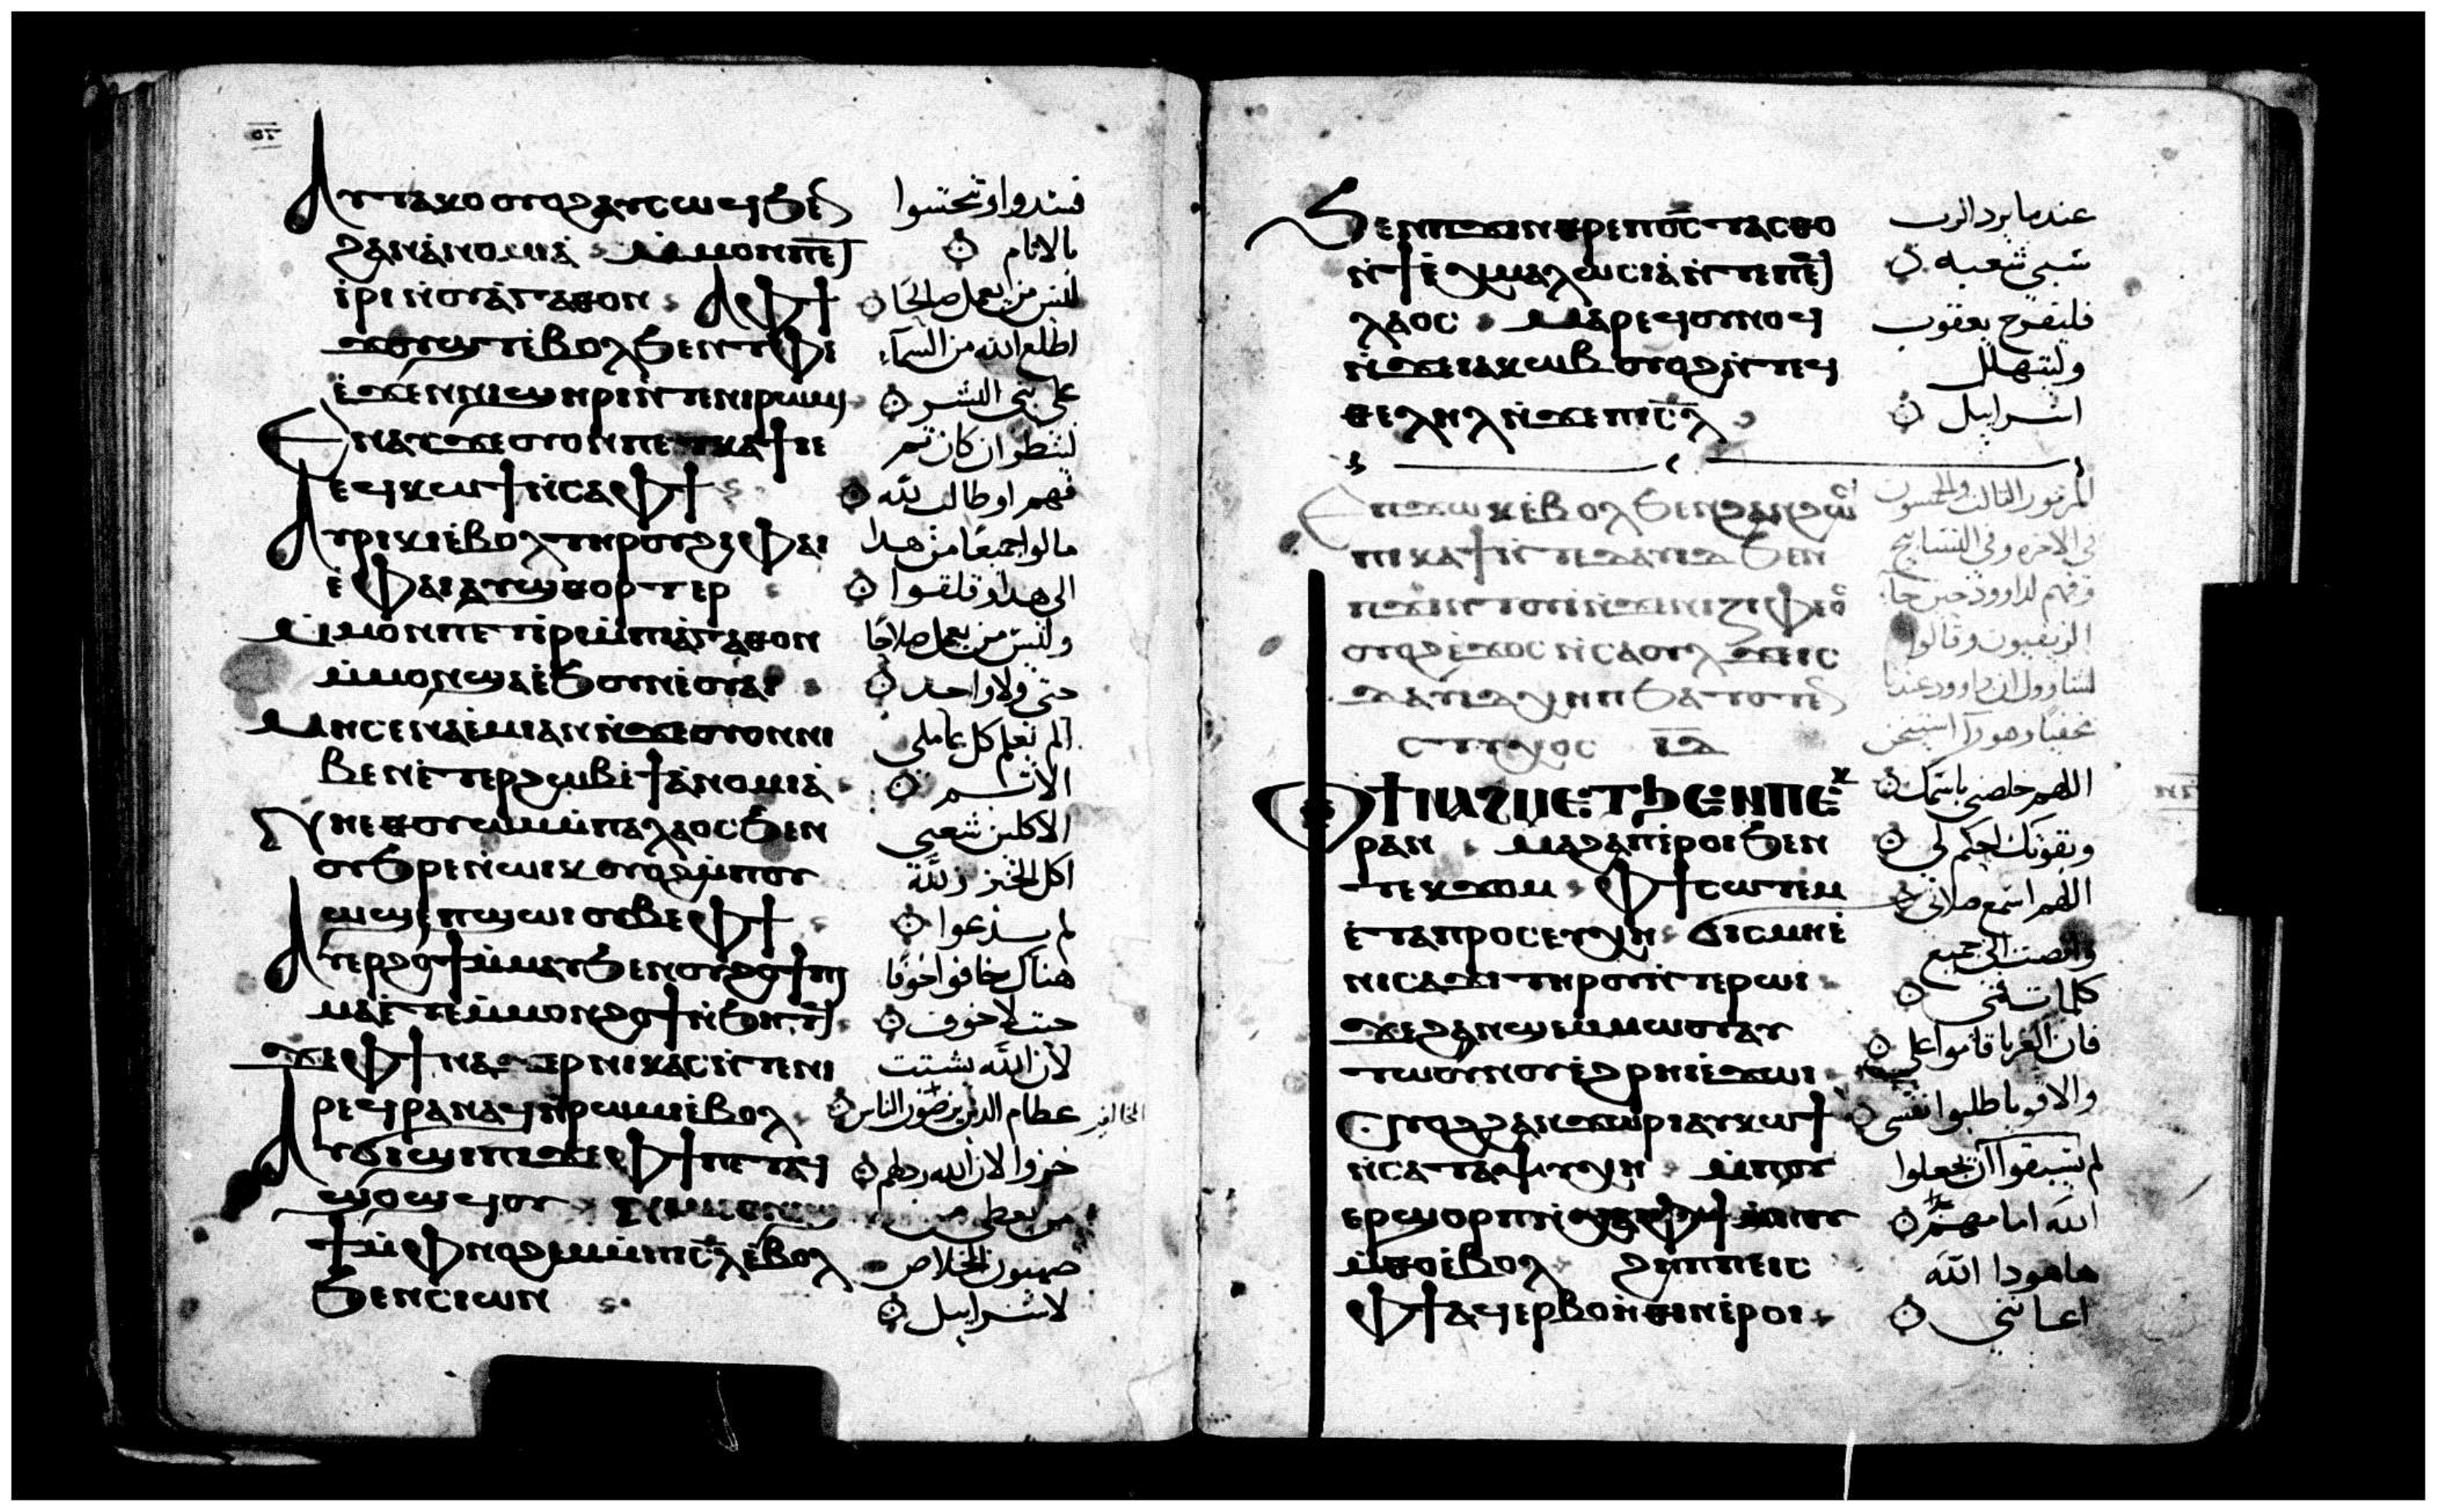 Ⲁⲩⲧⲁⲕⲟ ⲟⲩⲟϩ ⲁⲩⲥⲱϥ ϧⲉⲛ
ϩⲁⲛⲁ̀ⲛⲟⲙⲓⲁ̀ ⲙ̀ⲙⲟⲛ ⲡⲉⲧ
ⲓ̀ⲣⲓ ⲛ̀ⲟⲩⲁ̀ⲅⲁⲑⲟⲛ Ⲁⲫϯ
ϫⲟⲩϣⲧ ⲉ̀ⲃⲟⲗ ϧⲉⲛ ⲧⲫⲉ
ⲉ̀ϫⲉⲛ ⲛⲓϣⲏⲣⲓ ⲛ̀ⲧⲉ ⲛⲓⲣⲱⲙⲓ
Ⲉⲛⲁⲩ ϫⲉ ⲟⲩⲟⲛ ⲡⲉⲧⲕⲁϯ ⲓⲉ
ⲉϥⲕⲱϯ ⲛ̀ⲥⲁ ⲫϯ
Ⲁⲩⲣⲓⲕⲓ ⲉ̀ⲃⲟⲗ ⲧⲏⲣⲟⲩ ϩⲓ ⲫⲁⲓ
ⲉ̀ⲫⲁⲓ ⲁⲩϣⲑⲟⲣⲧⲉⲣ
ⲙ̀ⲙⲟⲛ ⲡⲉⲧⲓⲣⲓ ⲙ̀ⲡⲓⲁ̀ⲅⲁⲑⲟⲛ
ⲙ̀ⲙⲟⲛ ϣⲁ ⲉ̀ϧⲟⲩⲛ ⲉ̀ⲟⲩⲁⲓ
Ⲙⲏ ⲥⲉⲛⲁⲉ̀ⲙⲓ ⲁⲛ ⲛ̀ϫⲉ ⲟⲩⲟⲛ ⲛⲓ
ⲃⲉⲛ ⲉ̀ⲧⲉⲣϩⲱⲃ ⲉ̀ϯⲁ̀ⲛⲟⲙⲓⲁ̀
Ⲛⲏⲉⲑⲟⲩⲱⲙ ⲙ̀ⲡⲁⲗⲁⲟⲥ ϧⲉⲛ
ⲟⲩϧⲣⲉ ⲛ̀ⲱⲓⲕ ⲟⲩⲟϩ ⲙ̀ⲡⲟⲩ
ⲱϣ ⲉ̀ⲡϣⲱⲓ ⲟⲩⲃⲉ ⲫϯ
Ⲁⲩⲉⲣϩⲟϯ ⲙ̀ⲙⲁⲩ ϧⲉⲛ ⲟⲩϩⲟϯ ⲡⲓ
ⲙⲁ ⲉ̀ⲧⲉ ⲙ̀ⲙⲟⲛ ϩⲟϯ ⲛ̀ϧⲏⲧϥ
ϫⲉ ⲫϯ ⲛⲁϫⲉⲣ ⲛⲓⲕⲁⲥ ⲛ̀ⲧⲉ ⲛⲓ
ⲣⲉϥⲣⲁⲛⲁϥ ⲛ̀ⲣⲱⲙⲓ ⲉ̀ⲃⲟⲗ
Ⲁⲩϭⲓϣⲓⲡⲓ ϫⲉ ⲫϯ ⲡⲉⲧⲁϥ
ϣⲟϣϥⲟⲩ ⲛⲓⲙ
ϯ ⲙ̀ⲫⲛⲟϩⲉⲙ ⲙ̀ⲡⲓⲥ̅ⲗ̅ ⲉ̀ⲃⲟⲗ
ϧⲉⲛ ⲥⲓⲱⲛ
فسدوا وتنجسوا
بالاثام
ليس من يعمل صالحًا
اطلع الله من السماء
على بنى البشر
لينظر ان كان ثم
فهم او طالب لله
مالوا جميعًا من هذا
الى هذا وقلقوا
وليس من يعمل صلاحًا
حتى ولا واحد
الم تعلم كل عاملى
الاثم
الاكلين شعبى
اكل الخبز ولله
لم يدعوا
هناك يخافوا خوفًا
حيث لا خوف
لان الله يشتت
عظام الذين يرضون الناس
خزوا لان الله رذلهم
من يعطى من
صهيون الخلاص
لاسراييل
Ϧⲉⲛ ⲡϫⲓⲛⲑⲣⲉ ⲡⲟ̅ⲥ̅ ⲧⲁⲥⲑⲟ
ⲛ̀ϯⲉ̀ⲭⲙⲁⲗⲱⲥⲓⲁ̀ ⲛ̀ⲧⲉ ⲡⲉϥ
ⲗⲁⲟⲥ ⲙⲁⲣⲉϥⲟⲩⲛⲟϥ
ⲛ̀ϫⲉ ⲓⲁⲕⲱⲃ ⲟⲩⲟϩ ⲛ̀ⲧⲉϥ
ⲑⲉⲗⲏⲗ ⲛ̀ϫⲉ ⲡⲓⲥ̅ⲗ̅
Ⲉⲡϫⲱⲕ ⲉ̀ⲃⲟⲗ ϧⲉⲛ ϩⲁⲛϩⲱⲥ
ⲡⲓⲕⲁϯ ⲛ̀ⲧⲉ ⲇⲁⲩⲓⲇ ϧⲉⲛ
ⲡϫⲓⲛⲧⲟⲩⲓ̀ ⲛ̀ϫⲉ ⲛⲓⲍⲓⲫⲉⲟⲥ
ⲟⲩⲟϩ ⲉ̀ϫⲟⲥ ⲛ̀ⲥⲁⲟⲩⲗ ϫⲉ ⲓⲥ
ⲇⲁⲩⲓⲇ ⲭⲏⲡ ϧⲁⲧⲟⲧⲉⲛ
ⲥⲧⲩⲭⲟⲥ ⲓ̅ⲇ̅
Ⲫϯ ⲛⲁϩⲙⲉⲧ ϧⲉⲛ ⲡⲉⲕ
ⲣⲁⲛ ⲙⲁϩⲁⲡ ⲉ̀ⲣⲟⲓ ϧⲉⲛ
ⲧⲉⲕϫⲟⲙ Ⲫϯ ⲥⲱⲧⲉⲙ
ⲉ̀ⲧⲁⲡⲣⲟⲥⲉⲩⲭⲏ ϭⲓⲥⲙⲏ ⲉ̀
ⲛⲓⲥⲁϫⲓ ⲧⲏⲣⲟⲩ ⲛ̀ⲧⲉ ⲣⲱⲓ
ϫⲉ ϩⲁⲛϣⲉⲙⲙⲱⲟⲩ ⲁⲩ
ⲧⲱⲟⲩⲛⲟⲩ ⲉ̀ϩⲣⲏⲓ ⲉ̀ϫⲱⲓ
Ⲟⲩⲟϩ ϩⲁⲛϫⲱⲣⲓ ⲁⲩⲕⲱϯ
ⲛ̀ⲥⲁ ⲧⲁⲯⲩⲭⲏ ⲙ̀ⲡⲟⲩ
ⲉⲣϣⲟⲣⲡ
ⲙ̀ⲑⲟ ⲉ̀ⲃⲟⲗ ϩⲏⲡⲡⲉ ⲓⲥ
ⲫϯ ⲁϥⲉⲣⲃⲟⲏ̀ⲑⲓⲛ ⲉ̀ⲣⲟⲓ
عندما يرد الرب
سبى شعبه
فليفرح يعقوب
وليتهلل
اسراييل
المزمور الثالث والخمسون
فى الاخره وفى التسابيح
وفهم لداوود حين جا
الزيفيون وقالوا
لشاوول ان داوود عندنا
اللهم خلصنى باسمك
وبقوتك احكم لى
اللهم اسمع صلاتى
وانصت الى جميع
كلمات فمى
فان الغربا قاموا على
والاقويا طلبوا نفسى
لم يسبقوا ان يجعلوا
الله امامهم
هاهوذا الله
اعاننى